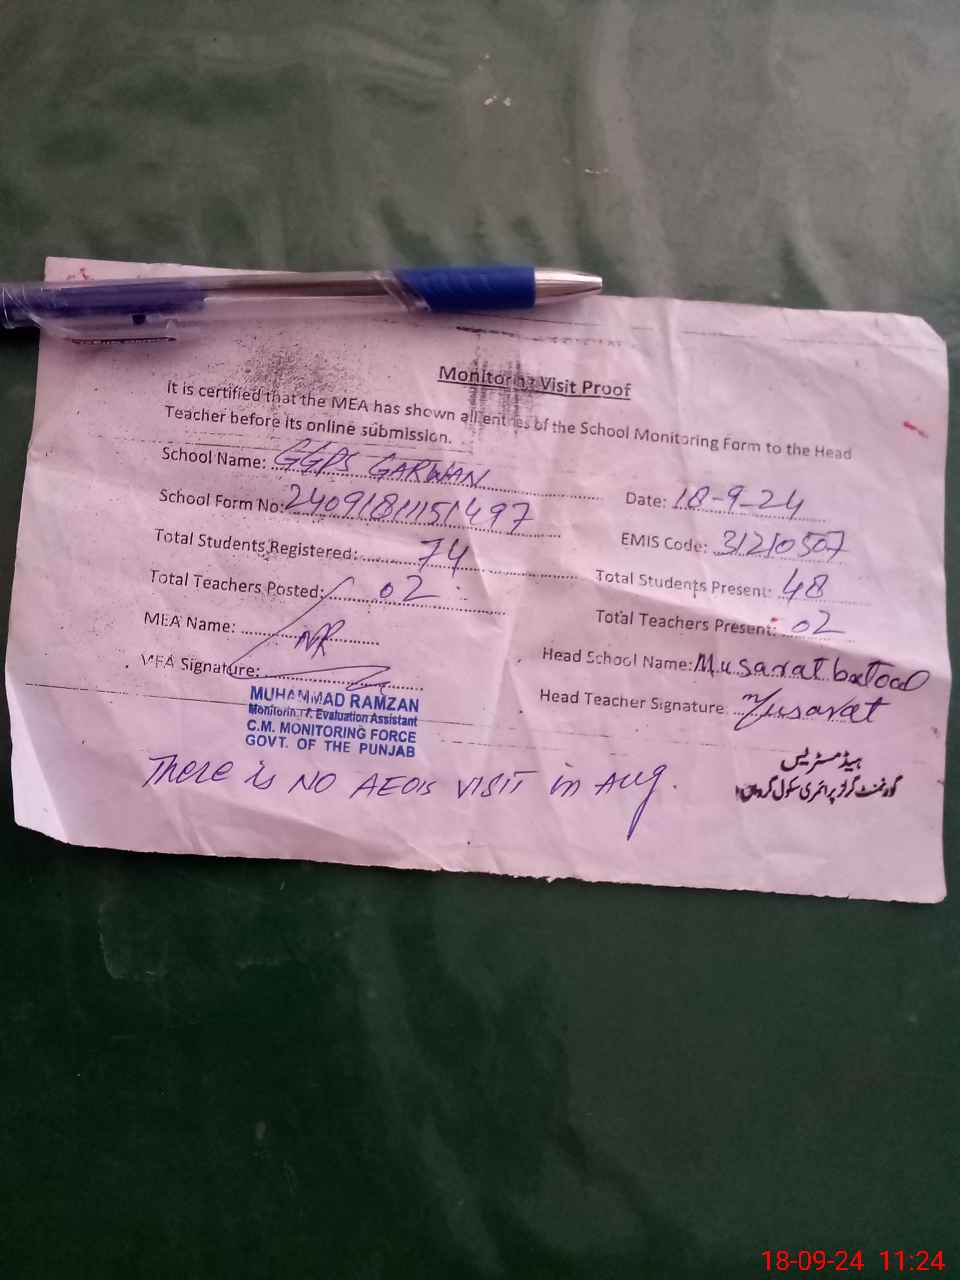 Monitoring Visit Proof
It is certified that the MEA has shown all entries of the School Monitoring Form to the Head
Teacher before its online submission.
School Name: GGPS GARWAN
Date: 18-9-24
School Form No: 24091811151497
EMIS Code: 31210507
Total Students Registered: 74
Total Students Present: 48
Total Teachers Posted: 02
Total Teachers Present: 02
MEA Name: MR
Head School Name: Musarat batool
MEA Signature:
Head Teacher Signature Musarat
MUHAMMAD RAMZAN
Monitoring & Evaluation Assistant
C.M. MONITORING FORCE
GOVT. OF THE PUNJAB
ہیڈمسٹریس
گورنمنٹ گرلز پرائمری سکول گروان
There is NO AEOIS VISIT in Aug.
18-09-24 11:24